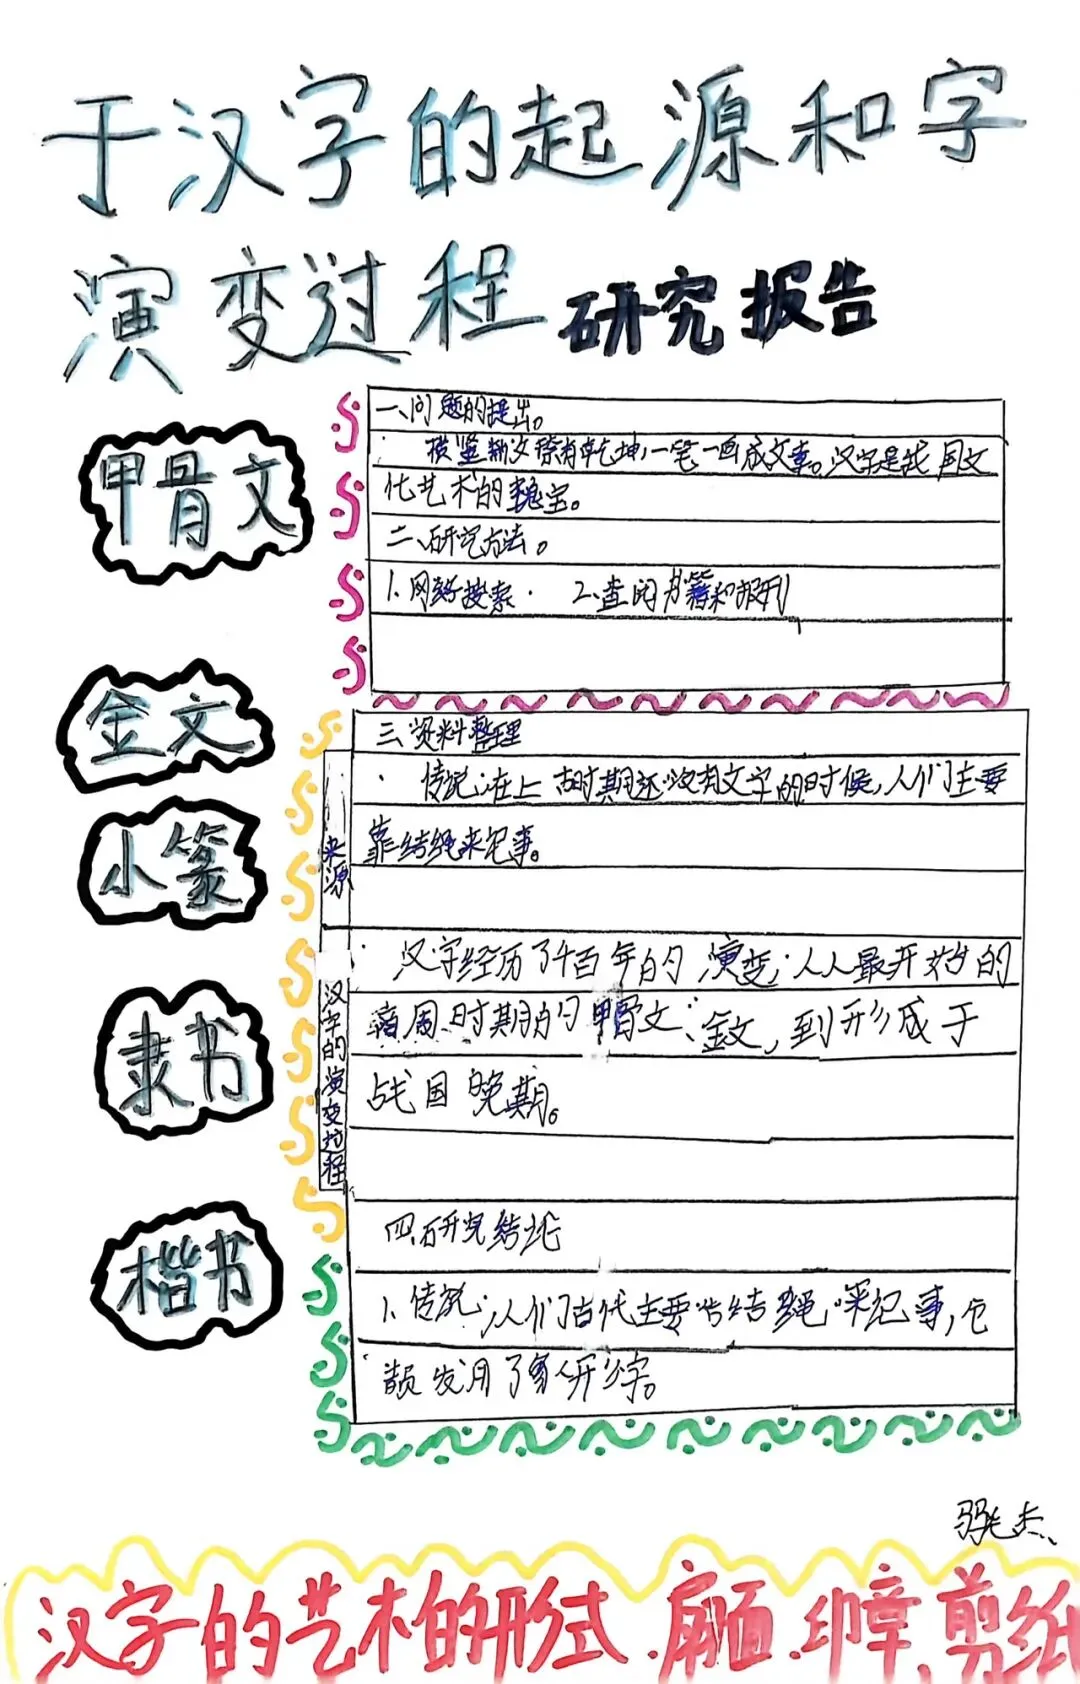 于汉字的起源和字
演变过程研究报告
甲骨文
金文
小篆
隶书
楷书
一、问题的提出。
横竖撇捺有乾坤,一笔一画成文章。汉字是我国文
化艺术的瑰宝。
二、研究方法。
1.网络搜索. 2.查阅书籍和报刊
三、资料整理
来源
传说:在上古时期还没有文字的时候,人们主要
靠结绳来记事。
汉字的演变过程
汉字经历了千百年的演变,人人最开始的
商周时期的甲骨文、金文,到形成于
战国晚期。
四、研究结论
1.传说:人们古代主要靠结绳来记事,仓
颉发明了
汉字的艺术的形式、扇面、印章、剪纸